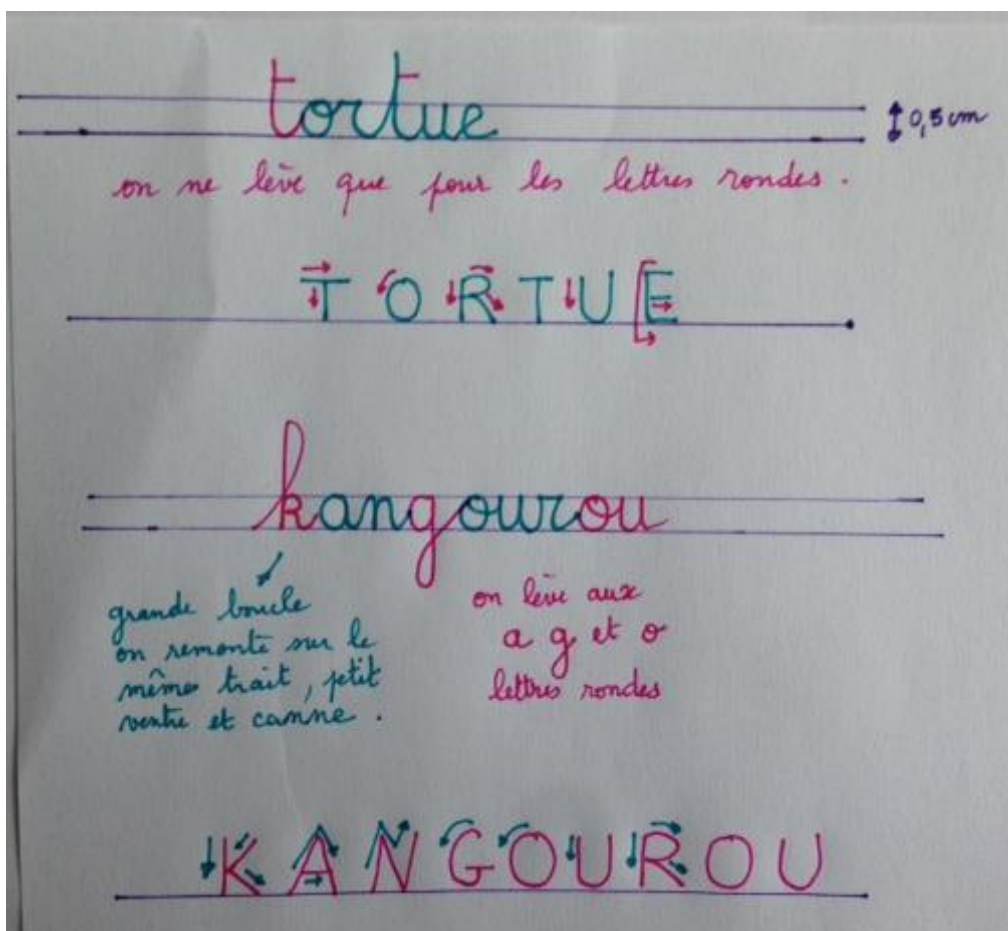 tortue
0,5 cm
on ne lève que pour les lettres rondes.
TORTUE
kangourou
grande boucle
on remonte sur le
même trait, petit
ventre et canne.
on lève aux
a g et o
lettres rondes
KANGOUROU